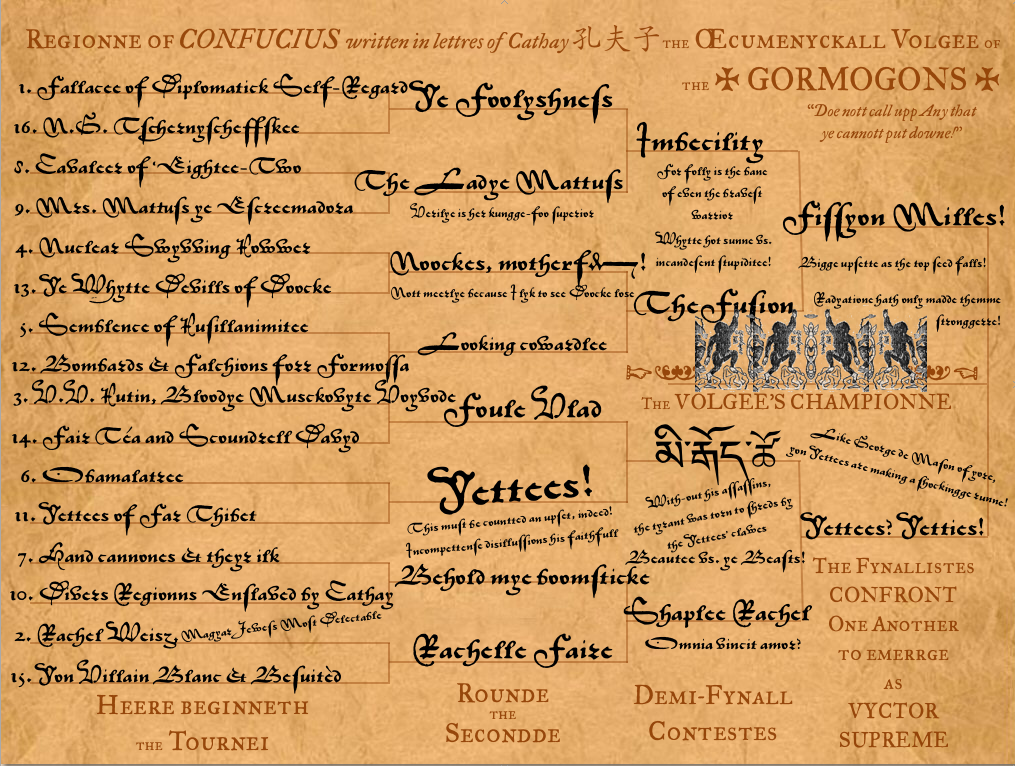 REGIONNE OF CONFUCIUS written in lettres of Cathay 孔夫子 THE ŒCUMENYCKALL VOLGEE OF
THE ✠ GORMOGONS ✠
“Doe nott call upp Any that
ye cannott put downe!”
1. Fallacee of Diplomatick Self-Regard
16. N.G. Tschernyscheffskee
8. Cavaleer of Eightee-Two
9. Mrs. Mattuſs ye Escreemadora
4. Nuclear Swyvving Powwer
13. Ye Whytte Devills of Doocke
5. Semblence of Pusillanimitee
12. Bombards & Falchions forr Formossa
3. V.V. Putin, Bloodye Musckovyte Voyvode
14. Fair Téa and Scoundrell Davyd
6. Obamalatree
11. Yettees of Far Thibet
7. Hand cannones & theyr ilk
10. Divers Regionns Enslaved by Cathay
2. Rachel Weisz, Magyar Jewess Most Delectable
15. Yon Villain Blanc & Besuitèd
HEERE BEGINNETH
THE TOURNEI
Ye Foolyshneſs
The Ladye Mattuſs
Verilye is her kungge-foo superior
Noockes, motherf&—!
Nott meerlye because I lyk to see Doocke lose
Looking cowardlee
Foule Vlad
Yettees!
This must be countted an upset, indeed!
Incompettense disillussions his faithfull
Behold mye boomsticke
Rachelle Faire
ROUNDE
THE
SECONDDE
Imbecility
For folly is the bane
of even the bravest
warrior
The Fusion
Whytte hot sunne vs.
incandesent stupiditee!
མི་རྒོད་ཚོ
With-out his aſſaſſins,
the tyrant was torn to ſhreds by
the Yettees' clawes
Beautee vs. ye Beasts!
Shaplee Rachel
Omnia vincit amor?
DEMI-FYNALL
CONTESTES
Fiſſyon Milles!
Bigge upsette as the top seed falls!
Radyatione hath only madde themme
stronggerre!
THE VOLGEE'S CHAMPIONNE
Like George de Mason of yore,
yon Yettees are making a ſhockingge runne!
Yettees? Yetties!
THE FYNALLISTES
CONFRONT
ONE ANOTHER
TO EMERRGE
AS
VYCTOR
SUPREME